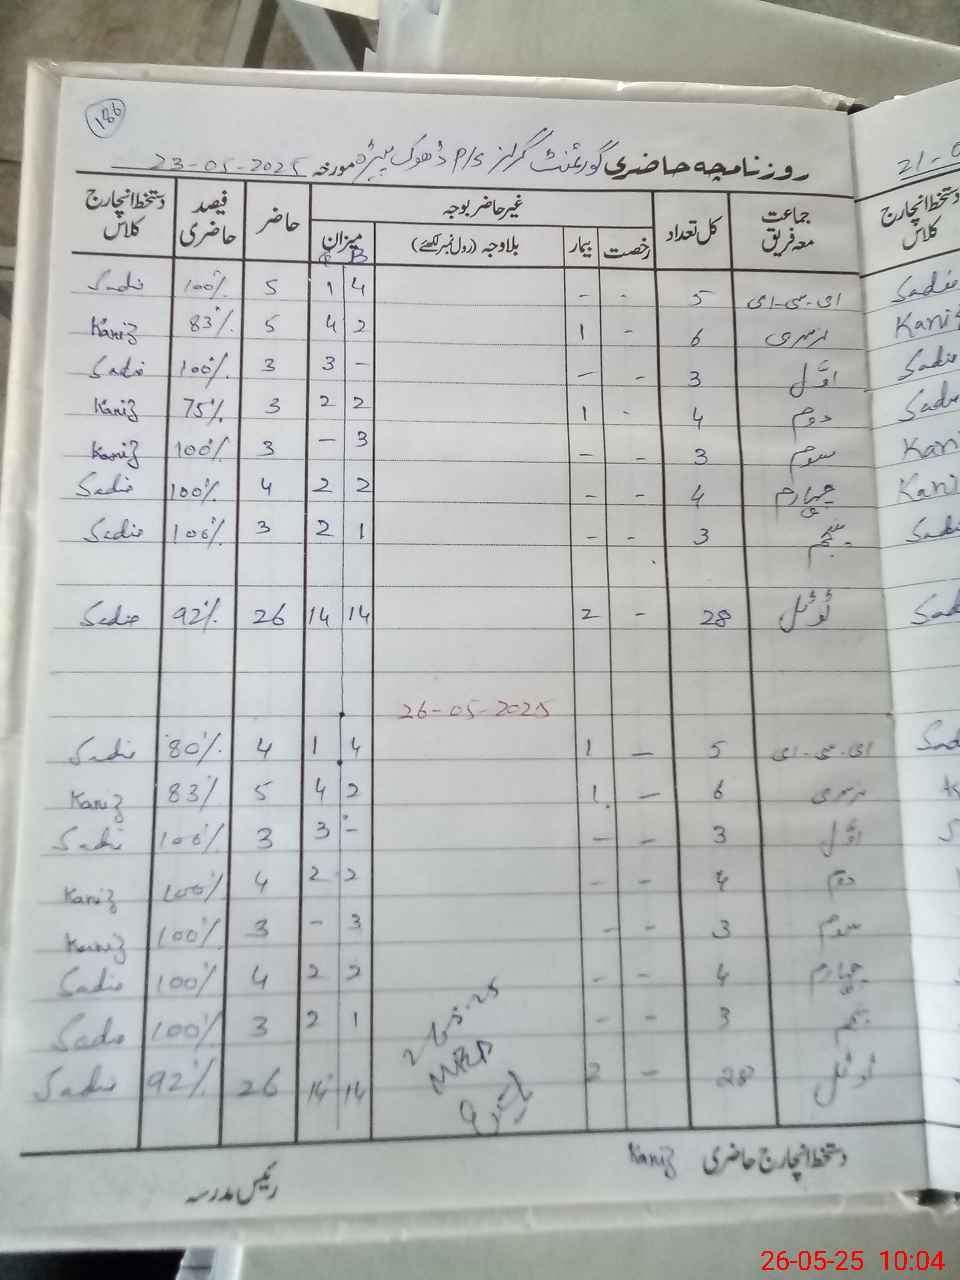 186
روزنامچہ حاضری گورنمنٹ گرلز P/S ڈھوک مورخہ 23-05-2025
جماعت معہ فریق کل تعداد غیر حاضر بوجہ حاضر فیصد حاضری دستخط انچارج کلاس
رخصت بیمار بلاوجہ (رول نمبر لکھئے) میزان
B G
ای-سی-ای 5 - - 4 1 5 100% Sadie
نرسری 6 - 1 2 4 5 83% Kaniz
اوّل 3 - - - 3 3 100% Sadie
دوم 4 - 1 2 2 3 75% Kaniz
سوم 3 - - 3 - 3 100% Kaniz
چہارم 4 - - 2 2 4 100% Sadie
پنجم 3 - - 1 2 3 100% Sadie
ٹوٹل 28 - 2 14 14 26 92% Sadie
26-05-2025
ای-سی-ای 5 - 1 4 1 4 80% Sadie
نرسری 6 - 1 2 4 5 83% Kaniz
اوّل 3 - - - 3 3 100% Sadie
دوم 4 - - 2 2 4 100% Kaniz
سوم 3 - - 3 - 3 100% Kaniz
چہارم 4 - - 2 2 4 100% Sadie
پنجم 3 - - 1 2 3 100% Sadie
ٹوٹل 28 - 2 14 14 26 92% Sadie
دستخط انچارج حاضری Kaniz
رئیس مدرسہ
دستخط انچارج کلاس
Kaniz
26-05-25 10:04